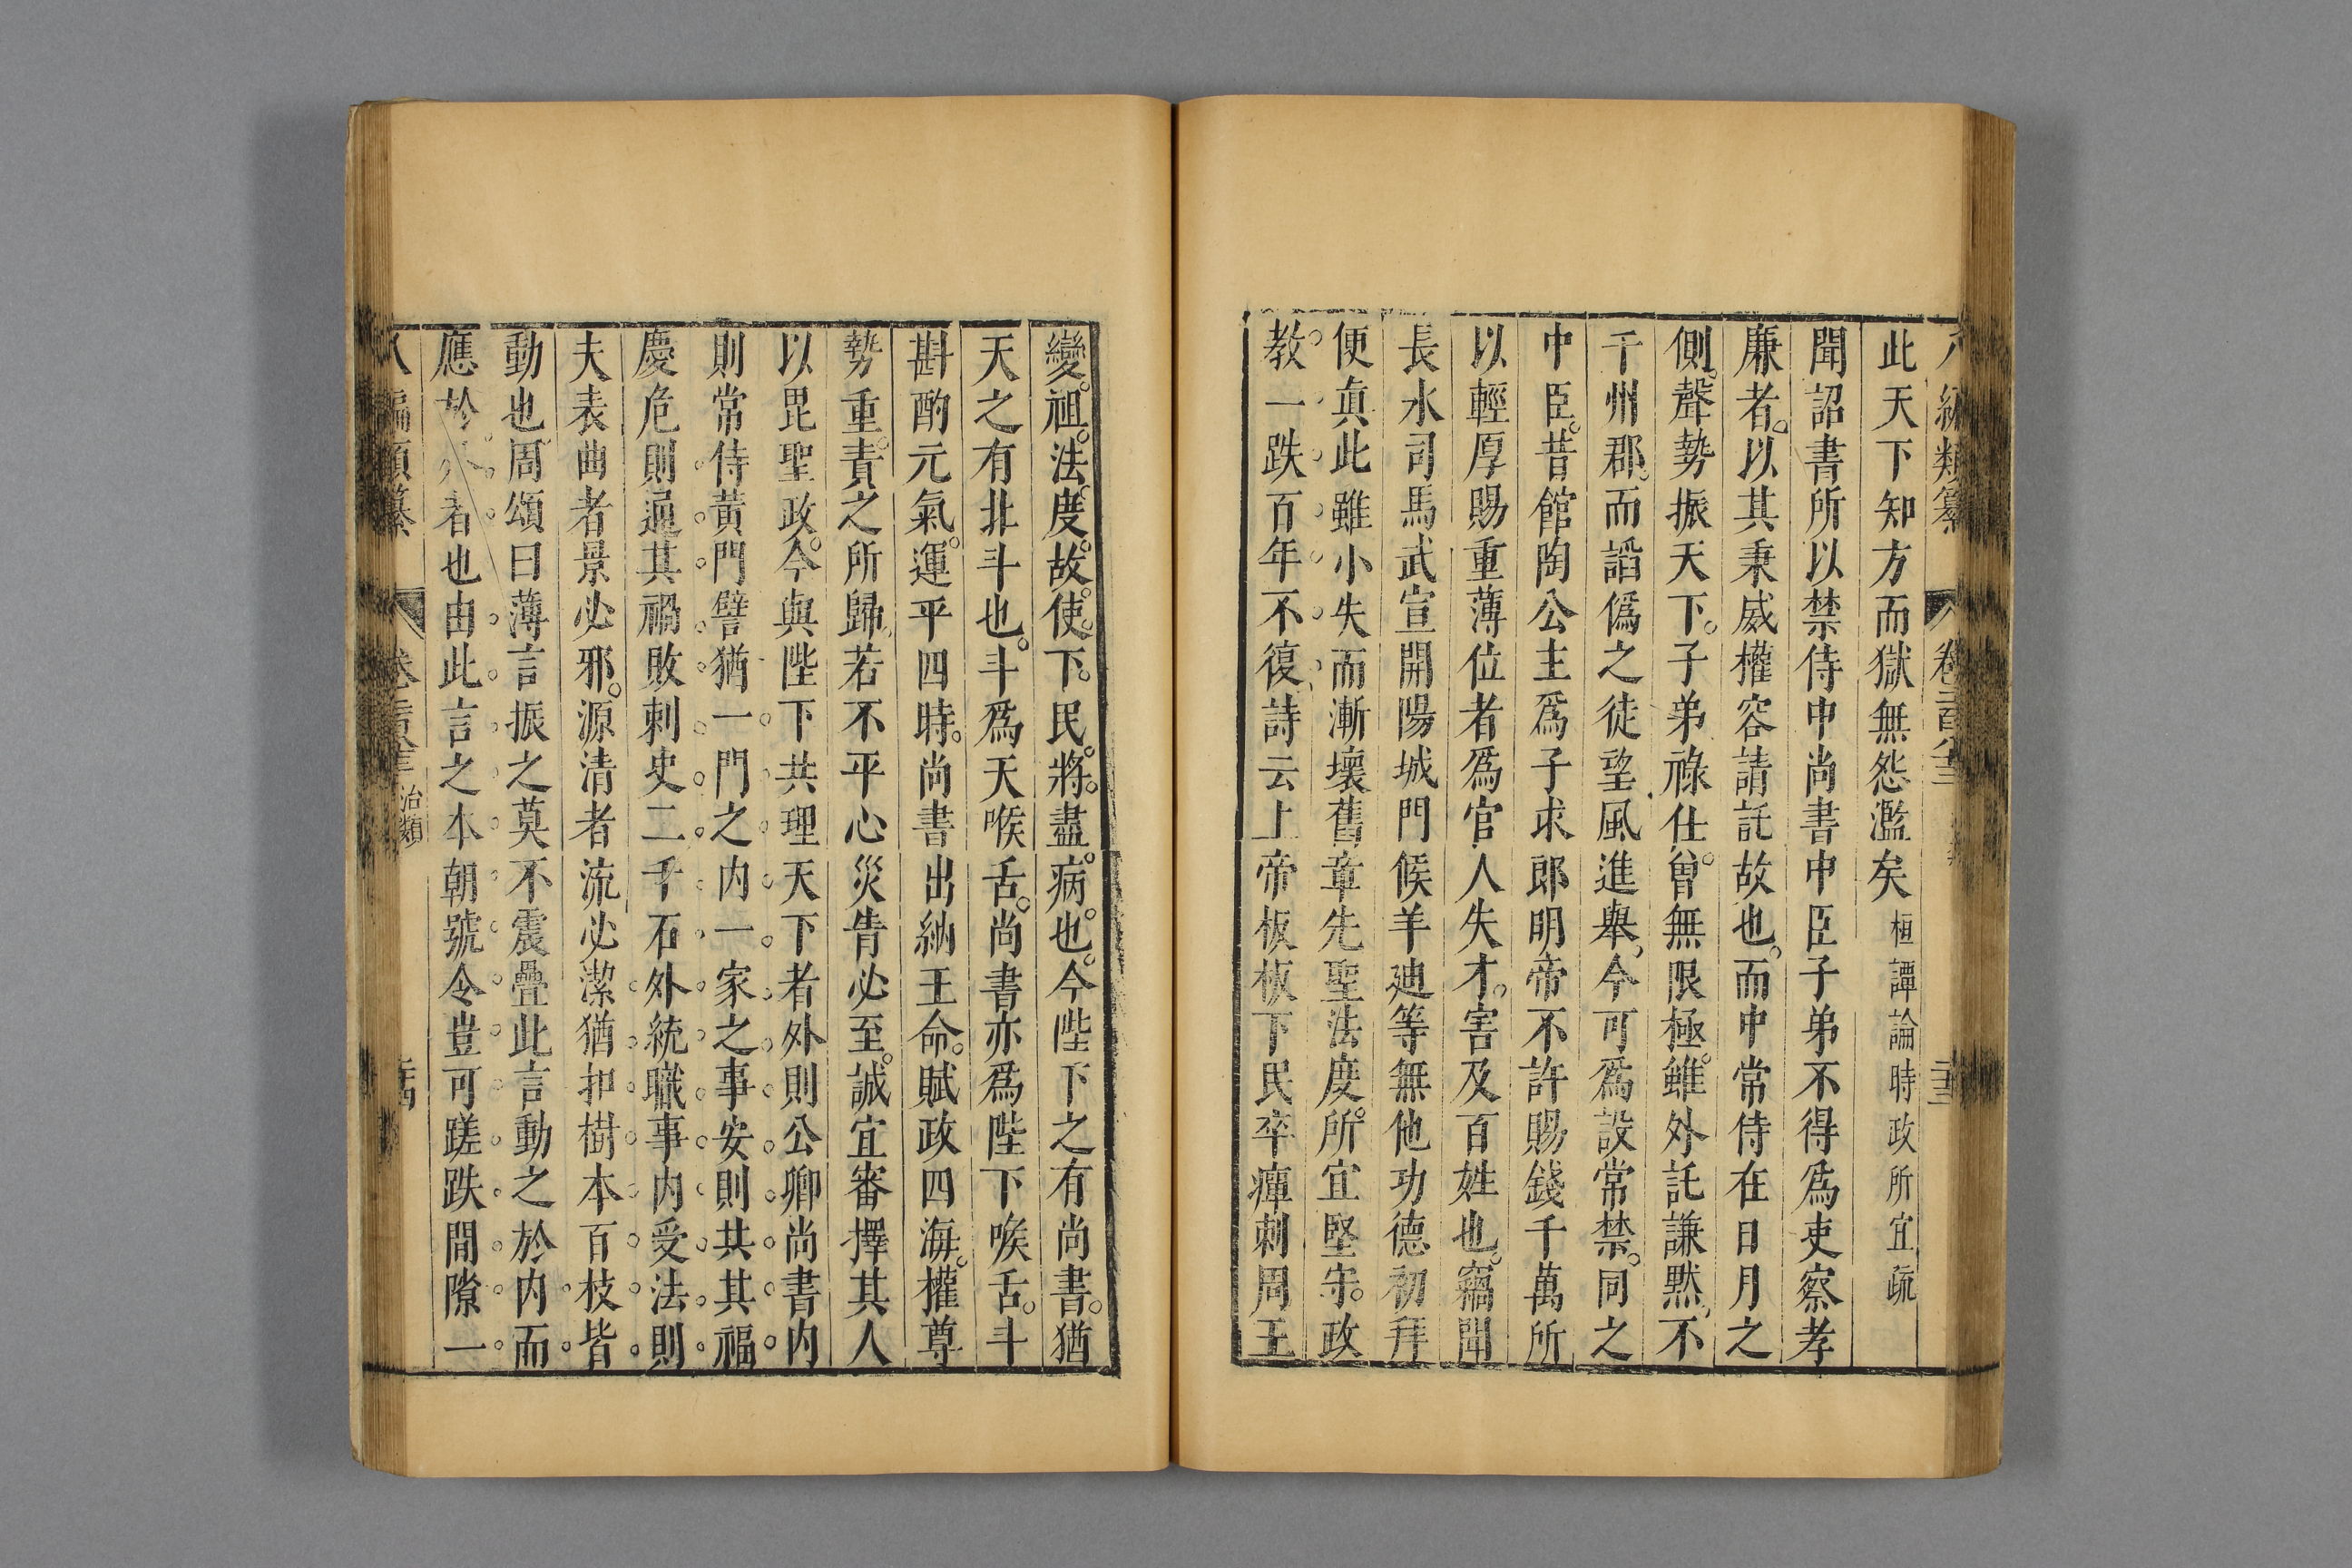 八編類纂 卷二百全三
此天下知方而獄無怨濫矣桓譚論時政所宜疏
聞詔書所以禁侍中尚書中臣子弟不得爲吏察孝
廉者。以其秉威權容請託故也。而中常侍在日月之
側。聲勢振天下。子弟祿仕。曾無限極。雖外託謙默、不
千州郡。而謟僞之徒望風進舉、今可爲設常禁。同之
中臣。昔館陶公主爲子求郎明帝不許賜錢千萬所
以輕厚賜重薄位者爲官人失才。害及百姓也。竊聞
長水司馬武宣開陽城門候羊迪等無他功德初拜
便真此雖小失而漸壞舊章先聖法度。所宜堅守。政
教一跌百年不復詩云上帝板板下民卒癉刺周王
變。祖。法。度。故。使。下。民。將。盡。病。也。今陛下之有尚書。猶
天之有北斗也。斗爲天喉舌。尚書亦爲陛下喉舌。斗
斟酌元氣。運平四時。尚書出納王命。賦政四海。權尊
勢重。責之所歸。若不平心災眚必至。誠宜審擇其人
以毘聖政。今與陛下共理天下者外則公卿尚書内
則常侍黃門譬猶一門之内一家之事安則共其福
慶危則通其禍敗刺史二千石外統職事内受法則
夫表曲者景必邪。源清者流必潔猶扣樹本百枝皆
動也周頌曰薄言振之莫不震疊此言動之於内而
應於外者也由此言之本朝號令豈可蹉跌間隙一
八編類纂 卷二百全三 治類